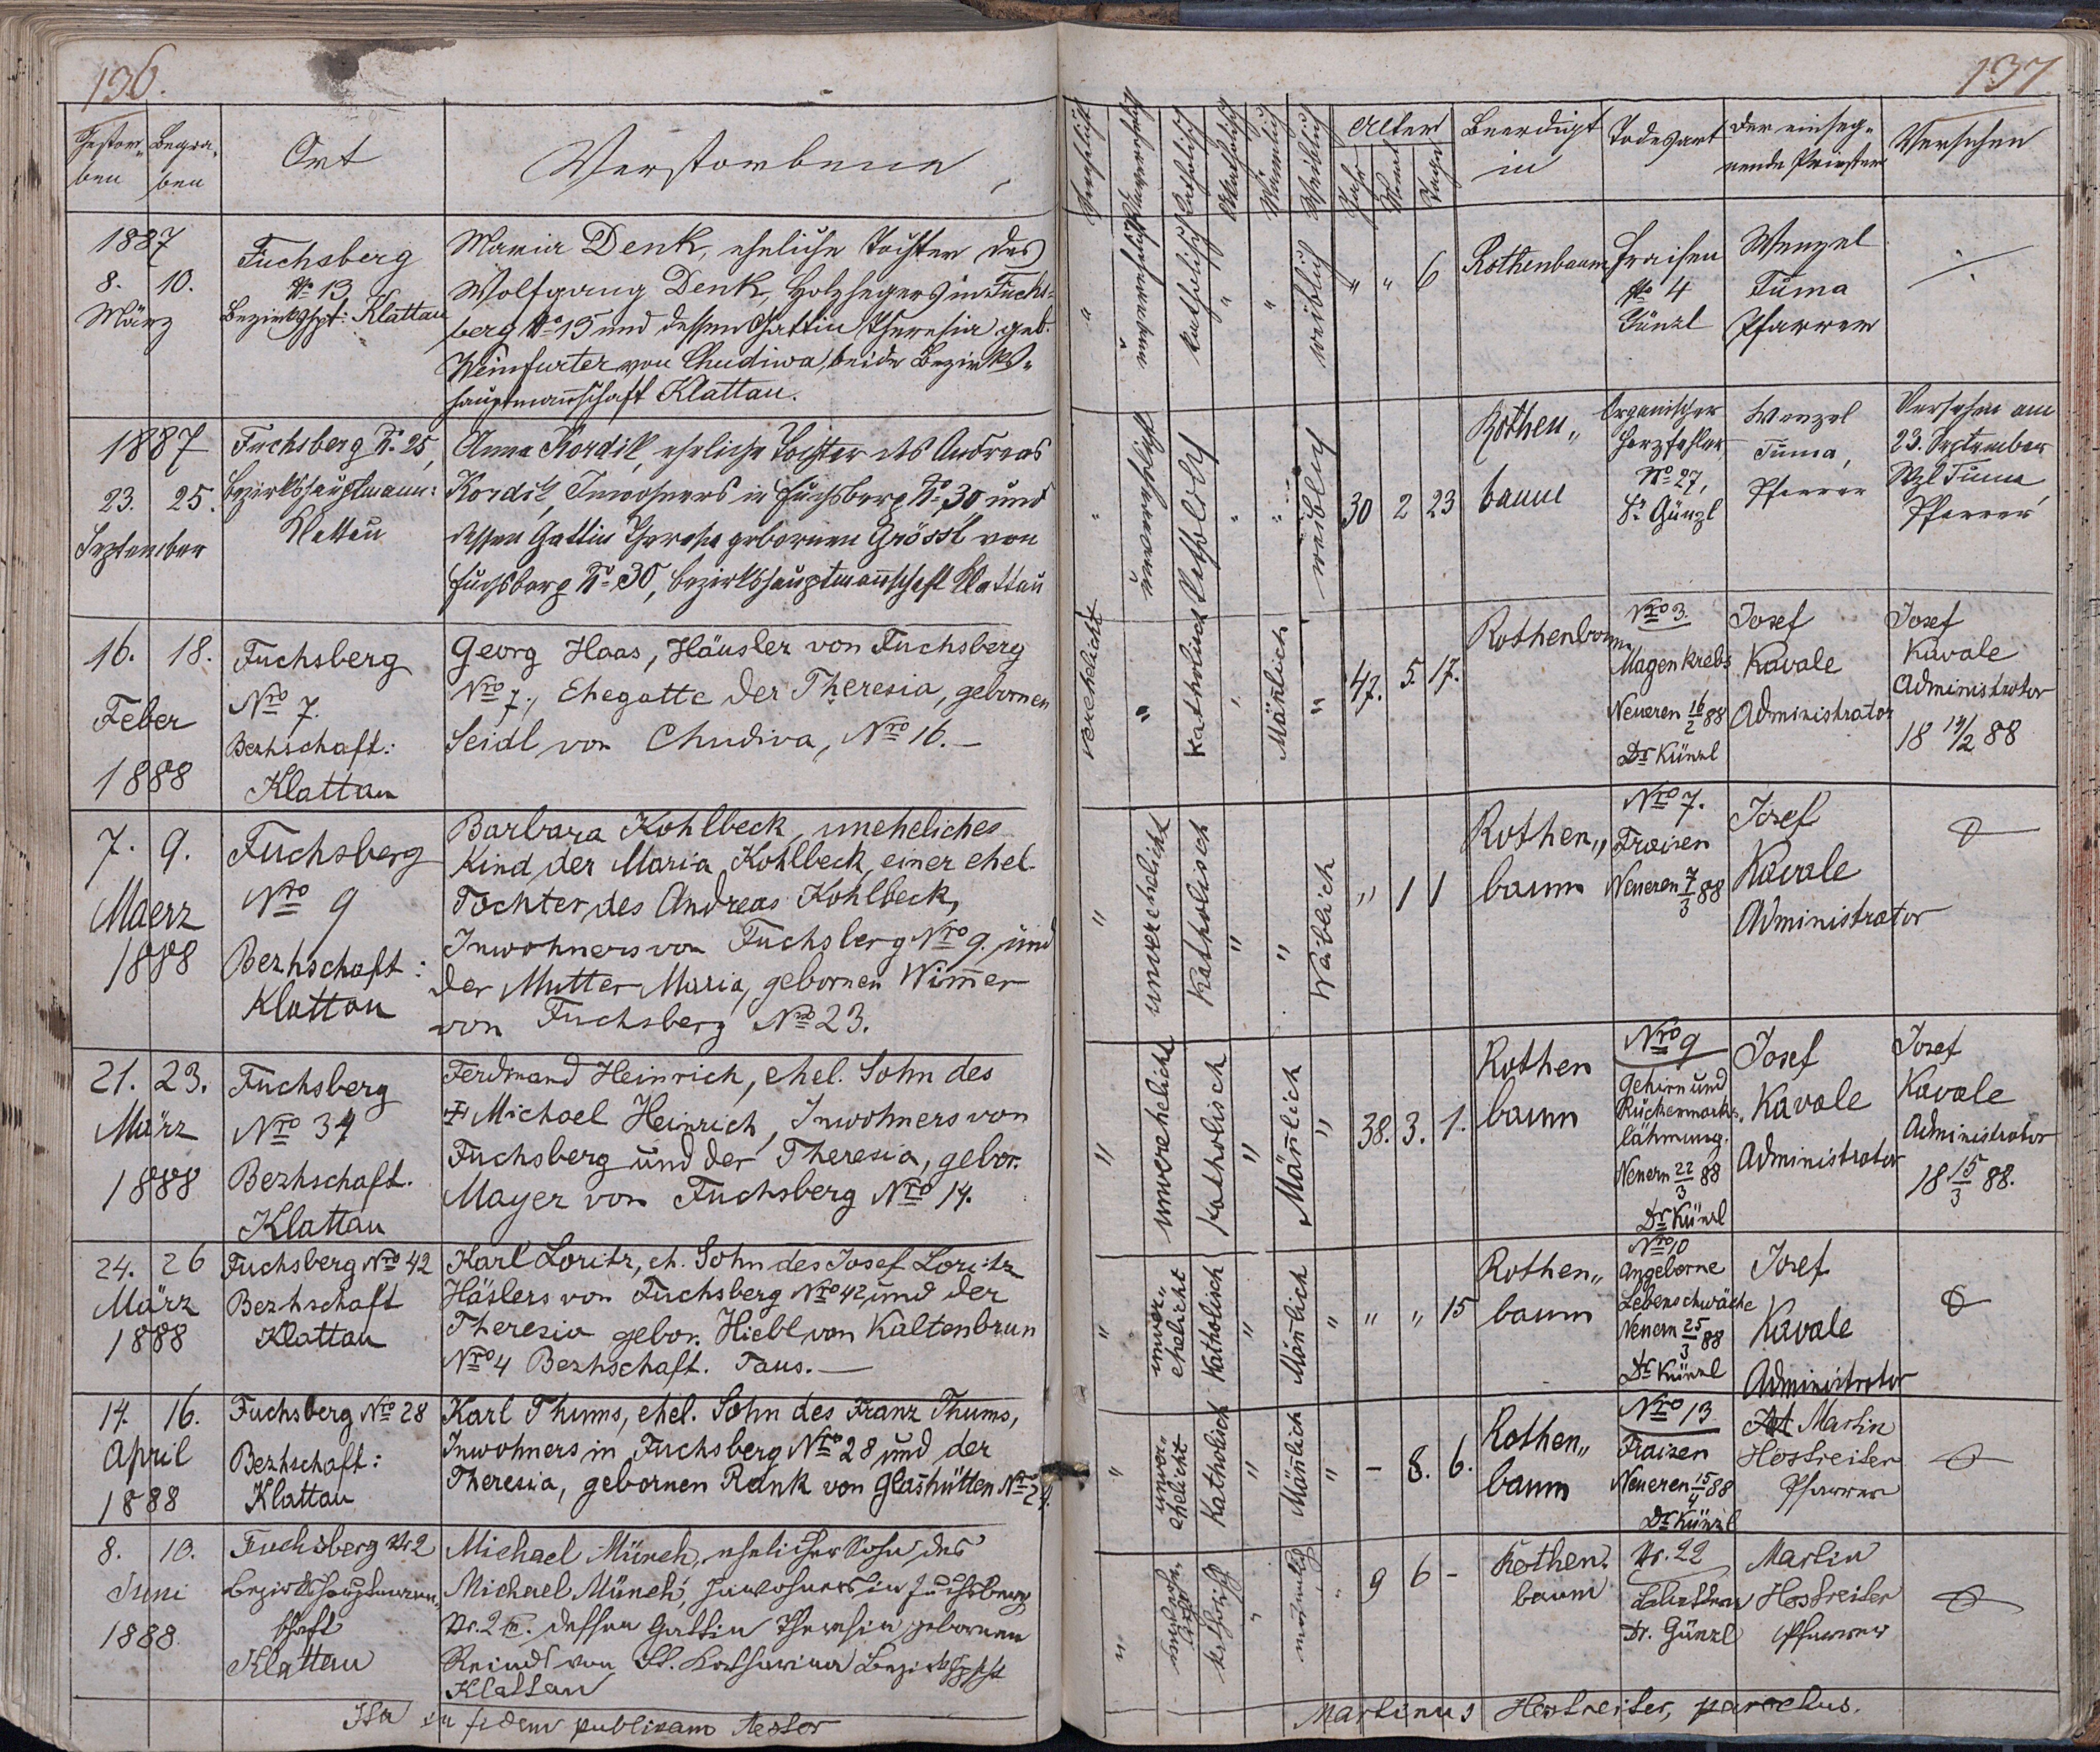 136.
137
Gestor-
ben
Begra-
ben
Ort
Verstorbene
Verehelicht
Unverehelicht
Katholisch
Akatholisch
Männlich
Weiblich
Alter
Jahr
Monat
Tage
Beerdigt
in
Todesart
Der einseg-
nende Priester
Versehen
1887
8. 10.
März
Fuchsberg
No 13
Bezirkshptsch: Klattau
Maria Denk, eheliche Tochter des
Wolfgang Denk, Holzhegers in Fuchs-
berg No 13 und dessen Gattin Theresia geb.
Weinfurter von Chudiwa, beide Bezirks-
hauptmannschaft Klattau.
"
unverehelicht
katholisch
"
"
weiblich
" " 6
Rothenbaum
Fraisen
No 4
Günzl
Wenzel
Tuma
Pfarrer
1887
23. 25.
September
Fuchsberg No. 25,
Bezirkshauptmann:
Klattau
Anna Kordik, eheliche Tochter des Andreas
Kordik, Inwohners in Fuchsberg No 30 und
dessen Gattin Theresia gebornen Grössl von
Fuchsberg No 30, Bezirkshauptmannschaft Klattau
"
unverehelicht
Katholisch
"
"
weiblich
30 2 23
Rothen„
baum
Organischer
Herzfehler,
No 27,
Dr Günzl
Wenzel
Tuma,
Pfarrer
Versehen am
23. September
Wzl Tuma,
Pfarrer
16. 18.
Feber
1888
Fuchsberg
Nro 7.
Bezhschaft:
Klattau
Georg Haas, Häusler von Fuchsberg
Nro 7., Ehegatte der Theresia, gebornen
Seidl von Chudiva, Nro 16.—
verehelicht
"
Katholisch
"
Mäñlich
"
47. 5. 17.
Rothenbaum
Nro 3.
Magenkrebs
Neueren 16/2 88
Dr Künzl
Josef
Kavale
Administrator
Josef
Kavale
Administrator
18 14/2 88
7. 9.
Maerz
1888
Fuchsberg
Nro 9
Bezhschaft:
Klattau
Barbara Kohlbeck, uneheliches
Kind der Maria Kohlbeck, einer ehel.
Tochter des Andreas Kohlbeck,
Inwohners von Fuchsberg Nro 9. und
der Mutter Maria, gebornen Wim̃er
von Fuchsberg Nro 23.
"
unverehelicht
Katholisch
"
"
Weiblich
" 1 1
Rothen„
baum
Nro 7.
Fraisen
Neueren 7/3 88
Josef
Kavale
Administrator
21. 23.
März
1888
Fuchsberg
Nro 34
Bezhschaft.
Klattau
Ferdinand Heinrich, ehel. Sohn des
✝ Michael Heinrich, Inwohners von
Fuchsberg und der Theresia, gebor.
Mayer von Fuchsberg Nro 14.
"
unverehelicht
Katholisch
"
Mäñlich
"
38. 3. 1.
Rothen
baum
Nro 9
Gehirn und
Rückenmarks.
lähmung.
Neuern 22/3 88
Dr Künzl
Josef
Kavale
Administrator
Josef
Kavale
Administrator
18 15/3 88.
24. 26
März
1888
Fuchsberg Nro 42
Bezhschaft
Klattau
Karl Loritz, eh. Sohn des Josef Loritz
Häslers von Fuchsberg Nro 42 und der
Theresia gebor. Hiebl von Kaltenbrun
Nro 4 Bezhschaft. Taus.—
"
unver„
ehelicht
Katholisch
"
Mäñlich
"
" " 15
Rothen„
baum
Nro 10
Angeborne
Lebenschwäche
Neuern 25/3 88
Dr Künzl
Josef
Kavale
Administrator
14. 16.
April
1888
Fuchsberg Nro 28
Bezhschaft:
Klattau
Karl Thums, ehel. Sohn des Franz Thums,
Inwohners in Fuchsberg Nro 28 und der
Theresia, gebornen Rank von Glashütten Nro 24.
"
unver„
ehelicht
Katholisch
"
Mäñlich
"
– 8. 6.
Rothen„
baum
Nro 13
Fraisen
Neueren 15/4 88
Dr Künzl
Martin
Hostreiter
Pfarrer
8. 10.
Juni
1888
Fuchsberg Nr 2
Bezirkshauptmann-
schaft
Klattau
Michael Münch, ehelicher Sohn des
Michael Münch, Inwohners in Fuchsberg
Nr. 2 u. dessen Gattin Theresia gebornen
Reindl von St. Katharina Bezirkshptsch
Klattau
"
katholisch
"
männlich
"
9 6 –
Rothen-
baum
Nr. 22
Dr. Günzl
Martin
Hostreiter
Pfarrer
Ita in fidem publicam testor
Martinus Hostreiter, parochus.